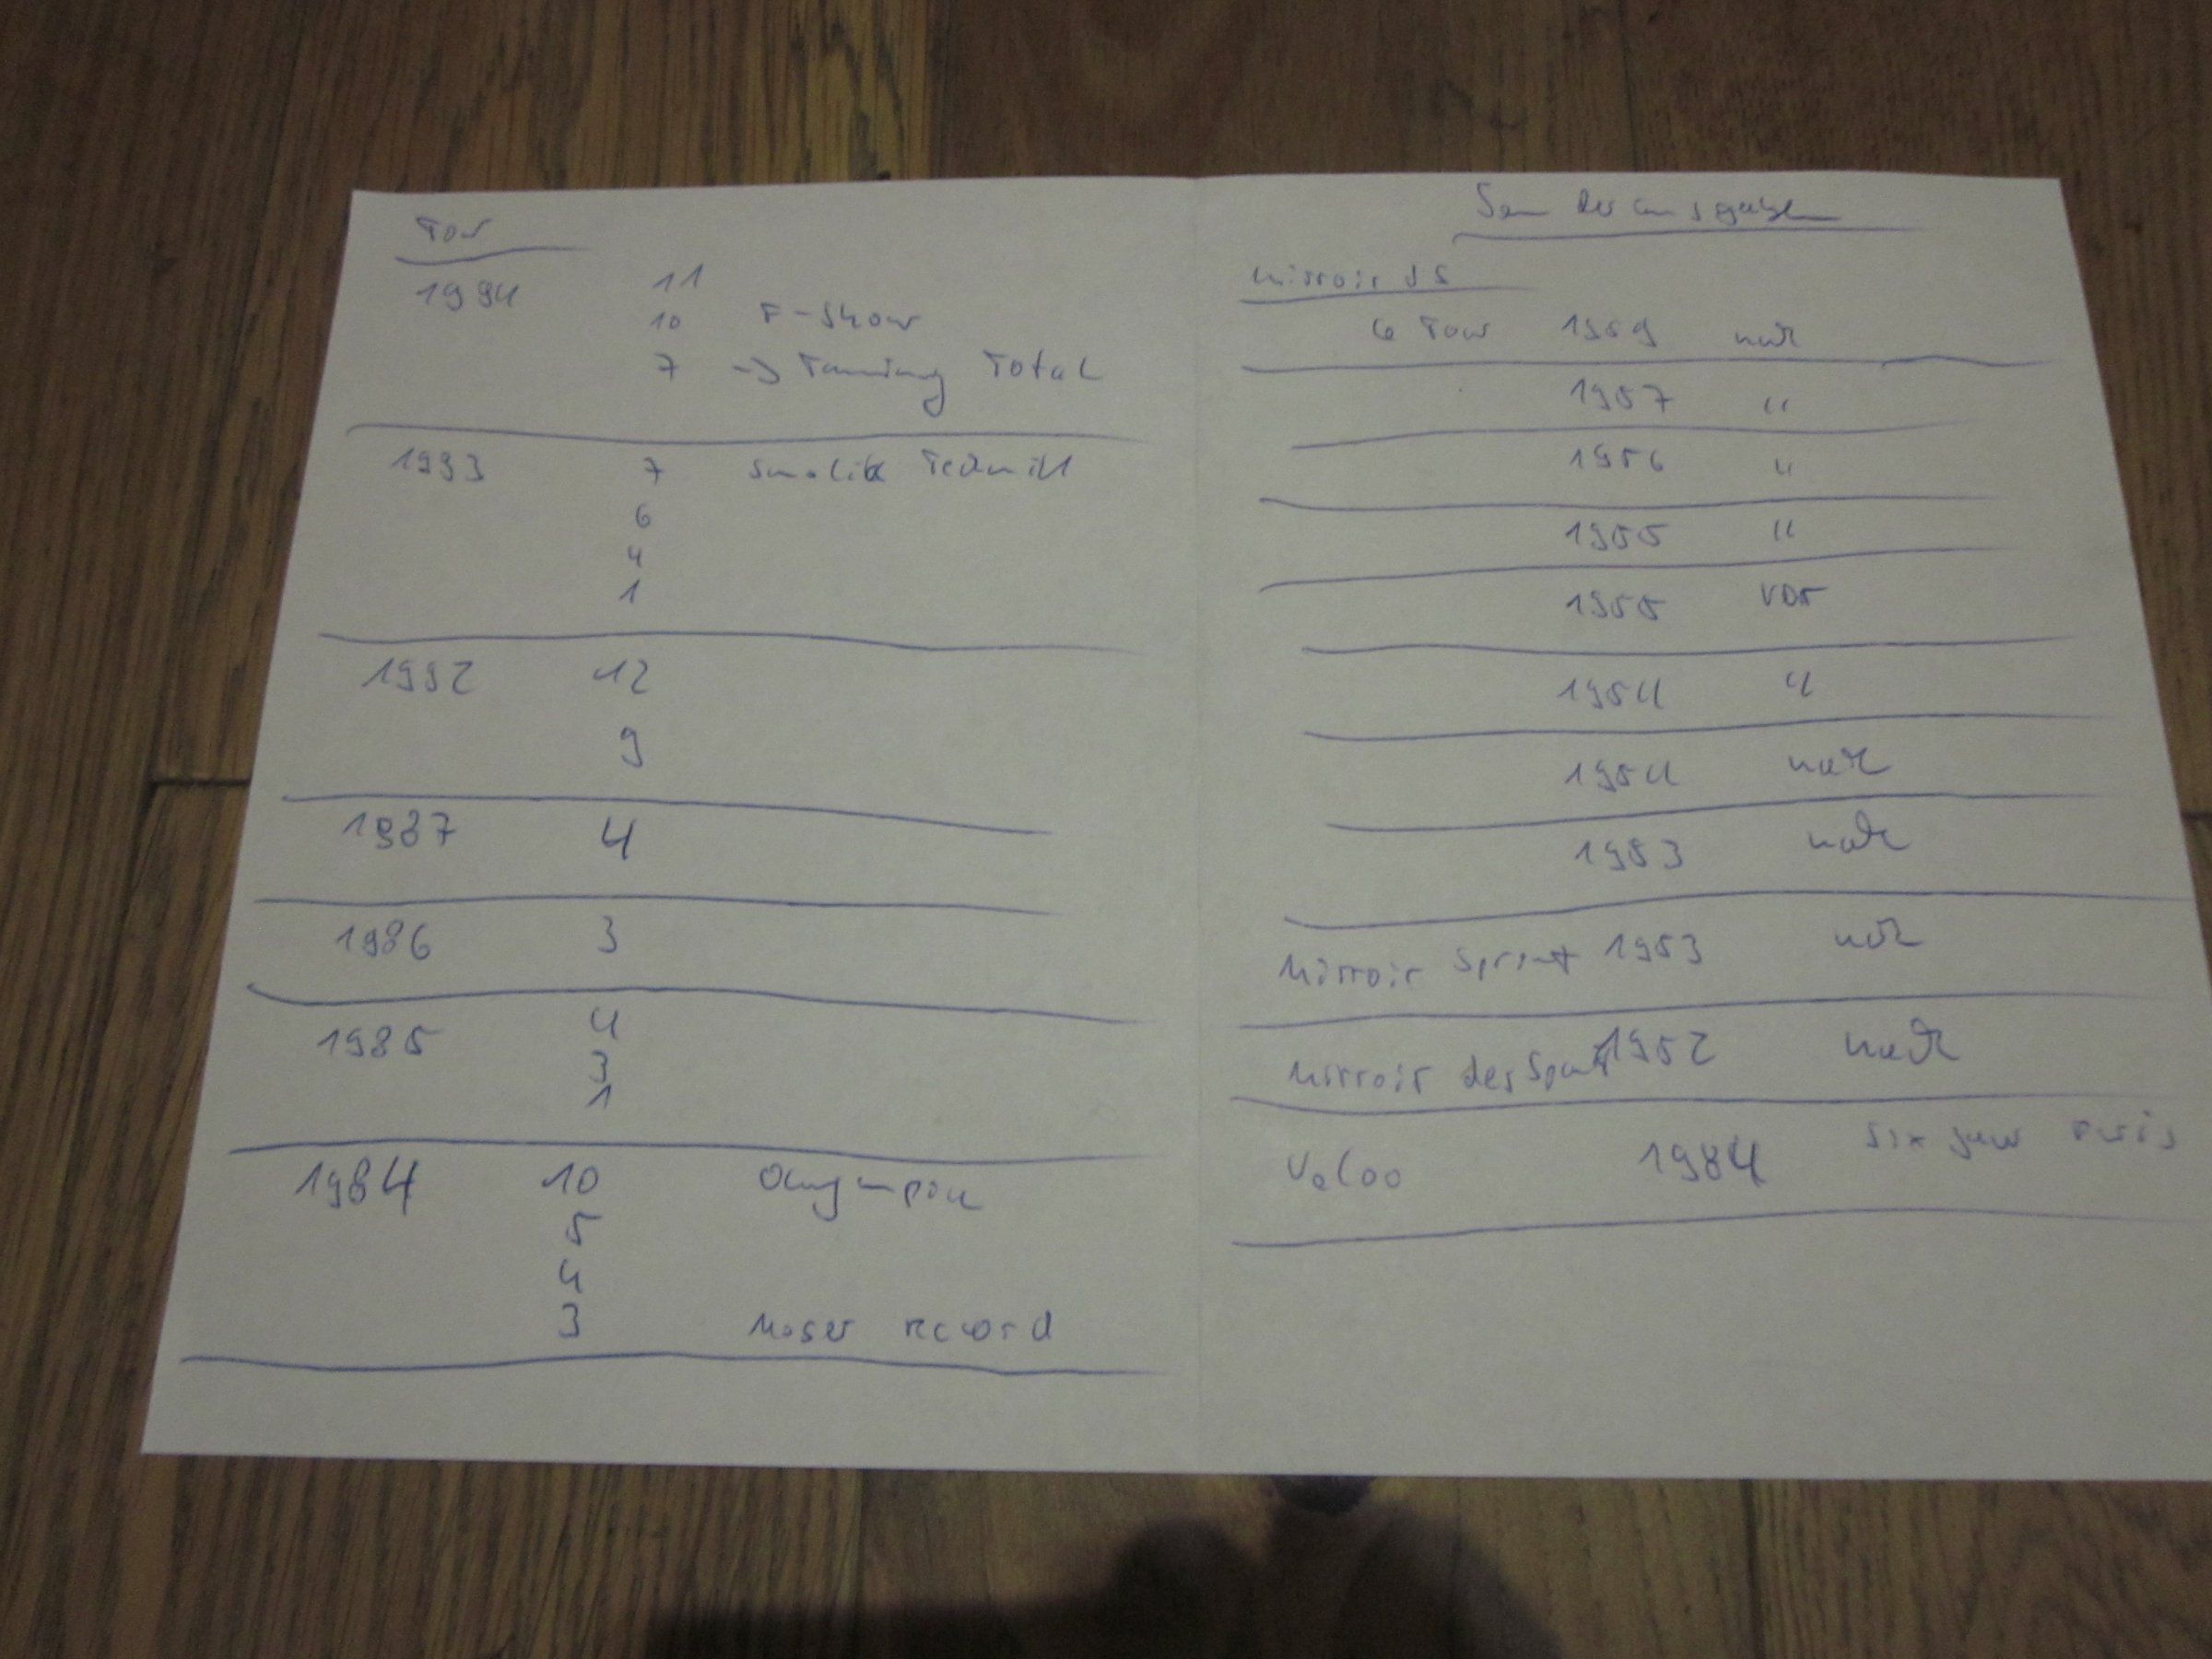 Tour
1994 11
10 F-Show
7 -> Training Total
1993 7 Smolik Technik
6
4
1
1992 12
9
1987 4
1986 3
1985 4
3
1
1984 10 Olympia
5
4
3 Moser record
Sonderausgaben
Mirroir d S
Tour 1959 nach
1957 "
1956 "
1955 "
1955 vor
1954 "
1954 nach
1953 nach
Mirroir Sprint 1953 nach
Mirroir des Sport 1952 nach
Veloo 1984 Six Paris